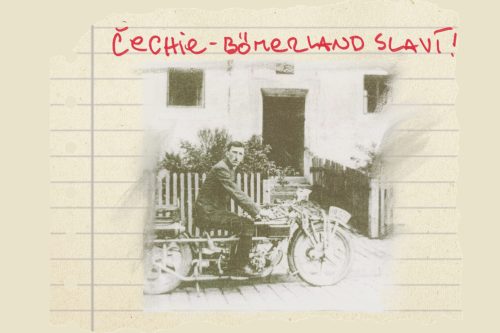 ČECHIE-BÖMERLAND SLAVÍ!